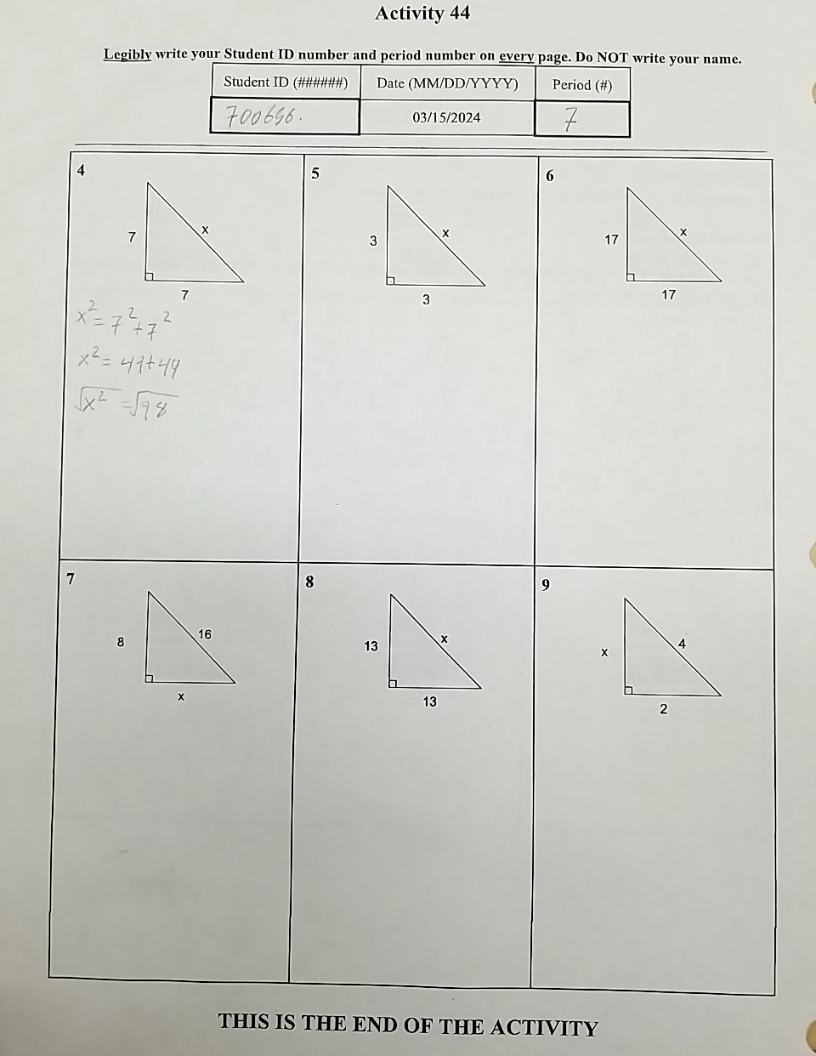 Activity 44
Legibly write your Student ID number and period number on every page. Do NOT write your name.
Student ID (######) Date (MM/DD/YYYY) Period (#)
700656. 03/15/2024 7
4
7
x
7
x² = 7² + 7²
x² = 49+49
√x² = √98
5
3
x
3
6
17
x
17
7
8
16
x
8
13
x
13
9
x
4
2
THIS IS THE END OF THE ACTIVITY